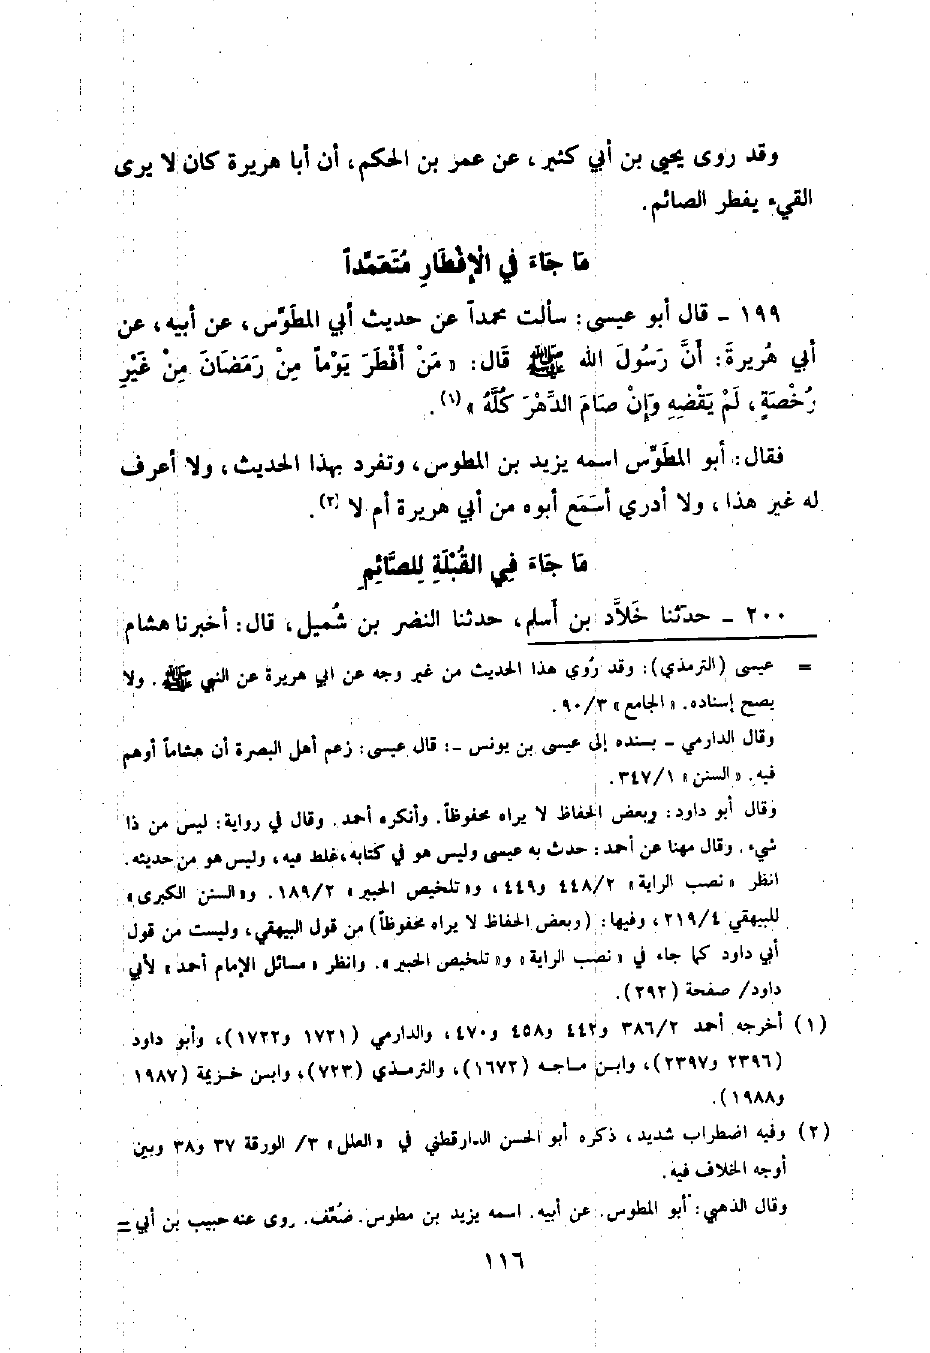 وقد روى يحيى بن أبي كثير، عن عمر بن الحكم، أن أبا هريرة كان لا يرى
القيء يفطر الصائم.
مَا جَاءَ في الْإِفْطَارِ مُتَعَمِّداً
١٩٩ - قال أبو عيسى: سألت محمداً عن حديث أبي المطَوِّس، عن أبيه، عن
أبي هُريرةَ: أَنَّ رَسُولَ الله ﷺ قَالَ: «مَنْ أَفْطَرَ يَوْماً مِنْ رَمَضَانَ مِنْ غَيْرِ
رُخْصَةٍ، لَمْ يَقْضِهِ وَإِنْ صَامَ الدَّهْرَ كُلَّهُ»(١).
فقال: أبو المطَوِّس اسمه يزيد بن المطوس، وتفرد بهذا الحديث، ولا أعرف
له غير هذا، ولا أدري أسَمَع أبوه من أبي هريرة أم لا(٢).
مَا جَاءَ فِي القُبْلَةِ لِلصَّائِمِ
٢٠٠ - حدثنا خَلاَّد بن أَسلم، حدثنا النضر بن شُميل، قال: أخبرنا هشام
= عيسى (الترمذي): وقد رُوي هذا الحديث من غير وجه عن أبي هريرة عن النبي ﷺ. ولا
يصح إسناده. «الجامع» ٩٠/٣.
وقال الدارمي - بسنده إلى عيسى بن يونس -: قال عيسى: زعم أهل البصرة أن هشاماً أوهم
فيه. «السنن» ٣٤٧/١.
وقال أبو داود: وبعض الحفاظ لا يراه محفوظاً. وأنكره أحمد. وقال في رواية: ليس من ذا
شيء. وقال مهنا عن أحمد: حدث به عيسى وليس هو في كتابه، غلط فيه، وليس هو من حديثه.
انظر «نصب الراية» ٤٤٨/٢ و٤٤٩، و«تلخيص الحبير» ١٨٩/٢. و«السنن الكبرى»
للبيهقي ٢١٩/٤، وفيها: (وبعض الحفاظ لا يراه محفوظاً) من قول البيهقي، وليست من قول
أبي داود كما جاء في «نصب الراية» و«تلخيص الحبير». وانظر «مسائل الإمام أحمد» لأبي
داود/ صفحة (٢٩٢).
(١) أخرجه أحمد ٣٨٦/٢ و٤٤٢ و٤٥٨ و٤٧٠، والدارمي (١٧٢١ و١٧٢٢)، وأبو داود
(٢٣٩٦ و٢٣٩٧)، وابن ماجه (١٦٧٢)، والترمذي (٧٢٣)، وابن خزيمة (١٩٨٧
و١٩٨٨).
(٢) وفيه اضطراب شديد، ذكره أبو الحسن الدارقطني في «العلل» ٣/ الورقة ٣٧ و٣٨ وبين
أوجه الخلاف فيه.
وقال الذهبي: أبو المطوس. عن أبيه. اسمه يزيد بن مطوس. ضُعِّف. روى عنه حبيب بن أبي =
١١٦